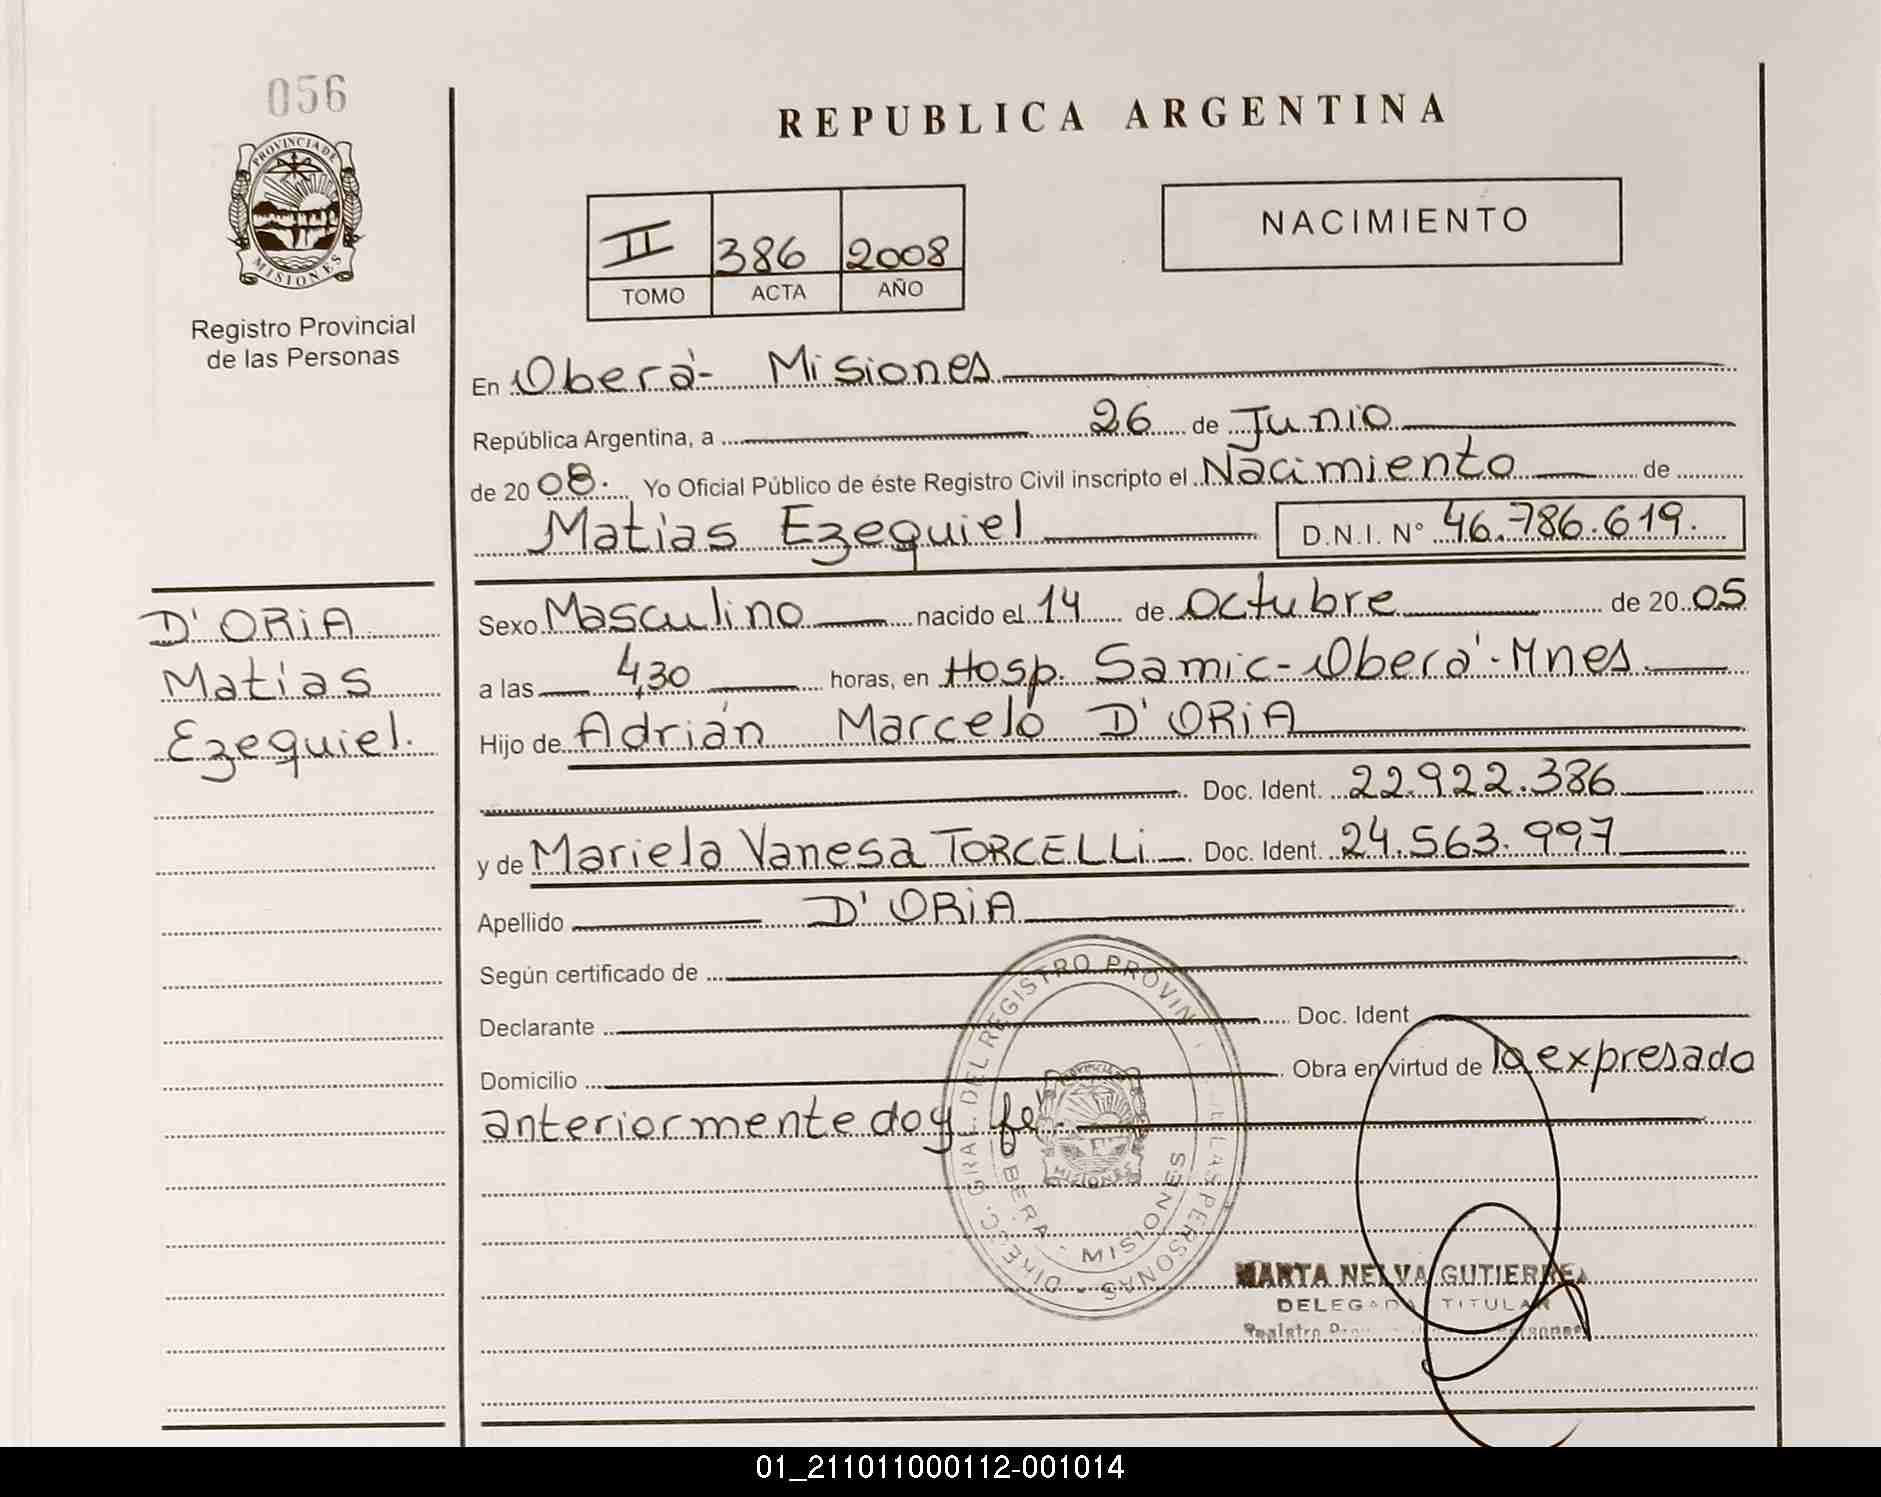 056
PROVINCIA DE
MISIONES
Registro Provincial
de las Personas
D' ORIA
Matías
Ezequiel.
REPUBLICA ARGENTINA
II 386 2008
TOMO ACTA AÑO
NACIMIENTO
En Oberá- Misiones
República Argentina, a 26 de Junio
de 2008. Yo Oficial Público de éste Registro Civil inscripto el Nacimiento de
Matías Ezequiel D.N.I. N° 46.786.619.
Sexo Masculino nacido el 14 de Octubre de 2005
a las 4,30 horas, en Hosp. Samic-Oberá-Mnes.
Hijo de Adrián Marcelo D' ORIA
Doc. Ident. 22.922.386
y de Mariela Vanesa TORCELLI Doc. Ident. 24.563.997
Apellido D' ORIA
Según certificado de
Declarante Doc. Ident
Domicilio Obra en virtud de lo expresado
anteriormente doy fe.
DIREC. GRAL. DEL REGISTRO PROVIN LAS PERSONAS
OBERA - MISIONES
MISIONES
MARTA NELVA GUTIERREZ
DELEGADA TITULAR
Registro Personas
01_211011000112-001014